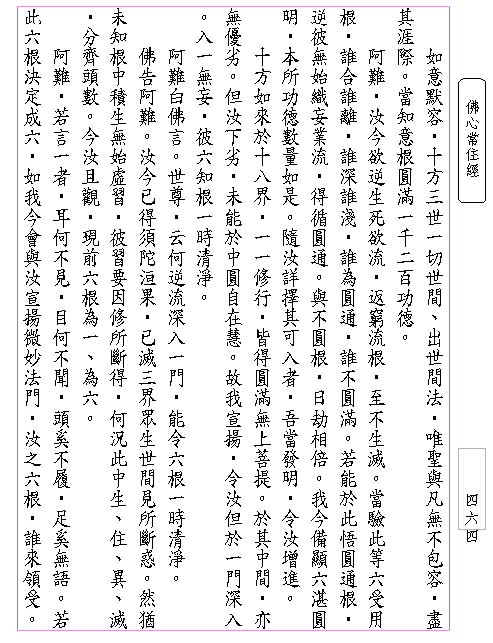 佛心常住經
如意默容，十方三世一切世間、出世間法，唯聖與凡無不包容，盡
其涯際。當知意根圓滿一千二百功德。
阿難，汝今欲逆生死欲流，返窮流根，至不生滅。當驗此等六受用
根，誰合誰離，誰深誰淺，誰為圓通，誰不圓滿。若能於此悟圓通根，
逆彼無始織妄業流，得循圓通。與不圓根，日劫相倍。我今備顯六湛圓
明，本所功德數量如是。隨汝詳擇其可入者，吾當發明，令汝增進。
十方如來於十八界，一一修行，皆得圓滿無上菩提。於其中間，亦
無優劣。但汝下劣，未能於中圓自在慧。故我宣揚，令汝但於一門深入
。入一無妄，彼六知根一時清淨。
阿難白佛言。世尊，云何逆流深入一門，能令六根一時清淨。
佛告阿難。汝今已得須陀洹果，已滅三界眾生世間見所斷惑。然猶
未知根中積生無始虛習，彼習要因修所斷得，何況此中生、住、異、滅
，分齊頭數。今汝且觀，現前六根為一、為六。
阿難，若言一者，耳何不見，目何不聞，頭奚不履，足奚無語。若
此六根決定成六，如我今會與汝宣揚微妙法門，汝之六根，誰來領受。
四六四